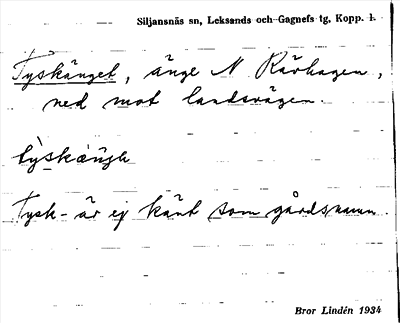 Siljansnäs sn, Leksands och Gagnefs tg, Kopp. l.
Tyskänget, änge N Rävhagen,
ned mot landsvägen.
tỳskæ̀ŋgɩ
Tysk- är ej känt som gårdsnamn.
Bror Lindén 1934